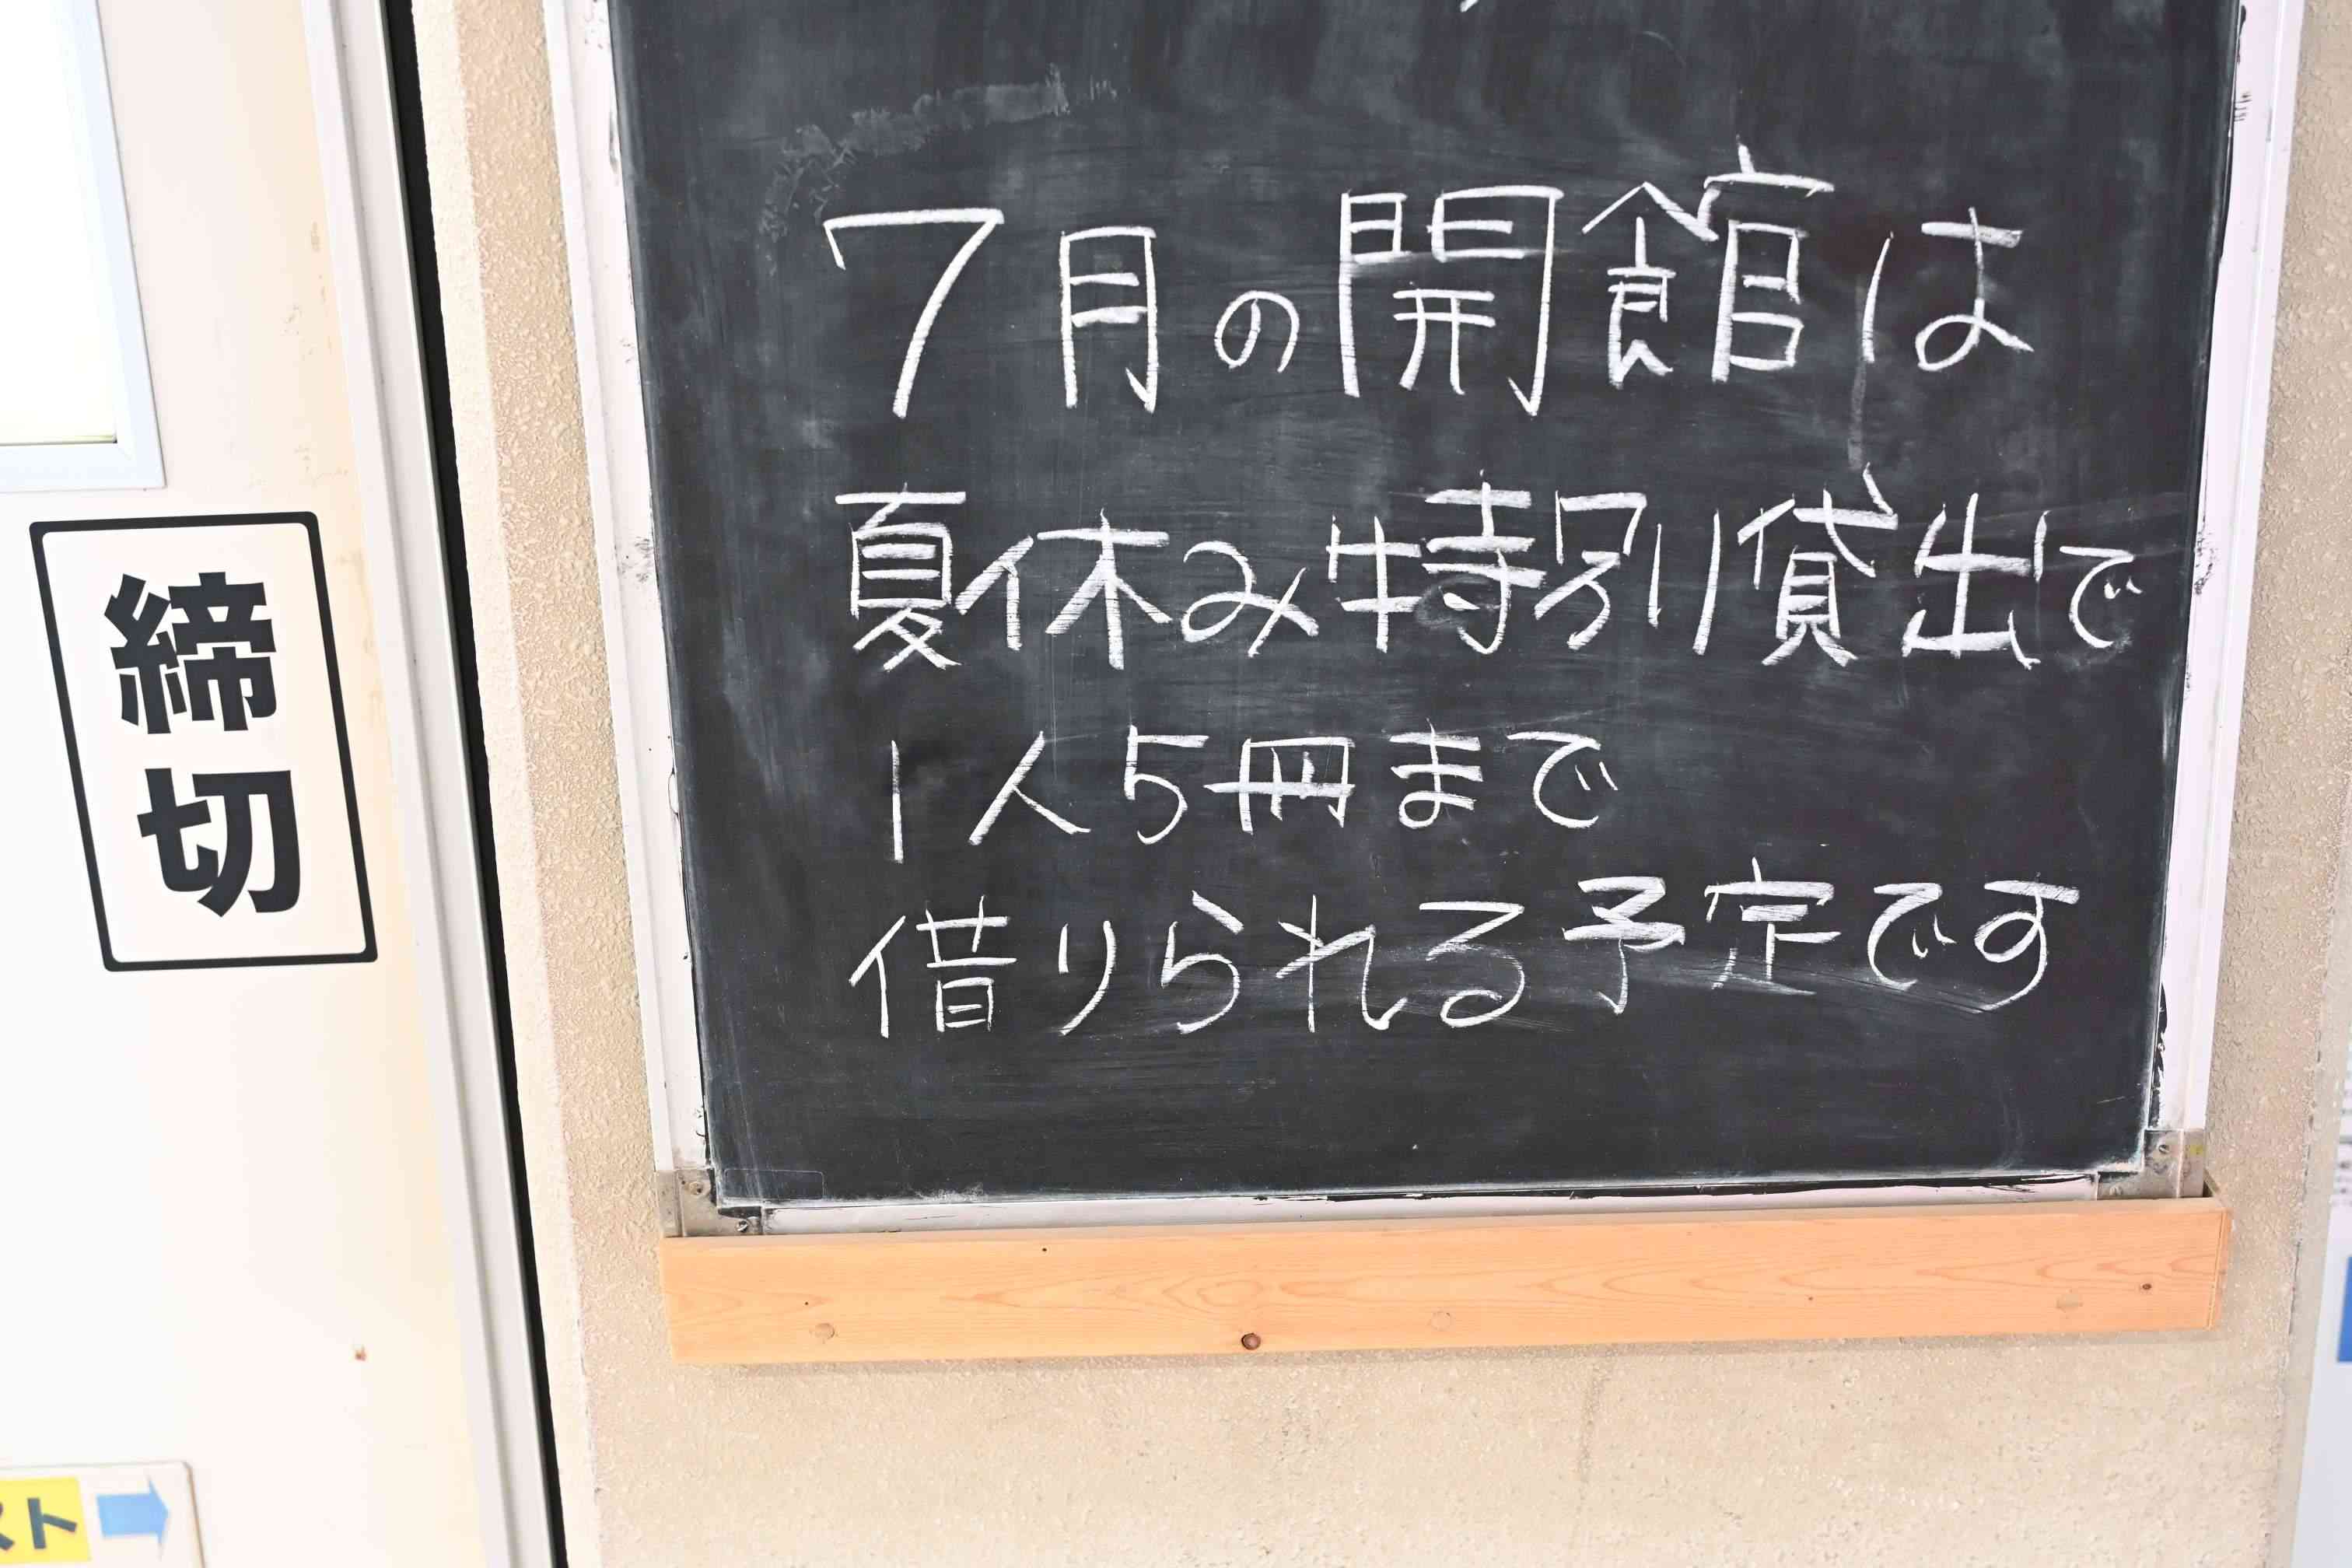 締切
7月の開館は
夏休み特別貸出で
1人5冊まで
借りられる予定です
スト